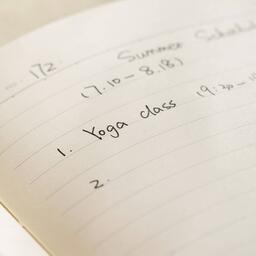 172
Summer Schedul
(7.10 - 8.18)
1. Yoga class 19:30 -
2.